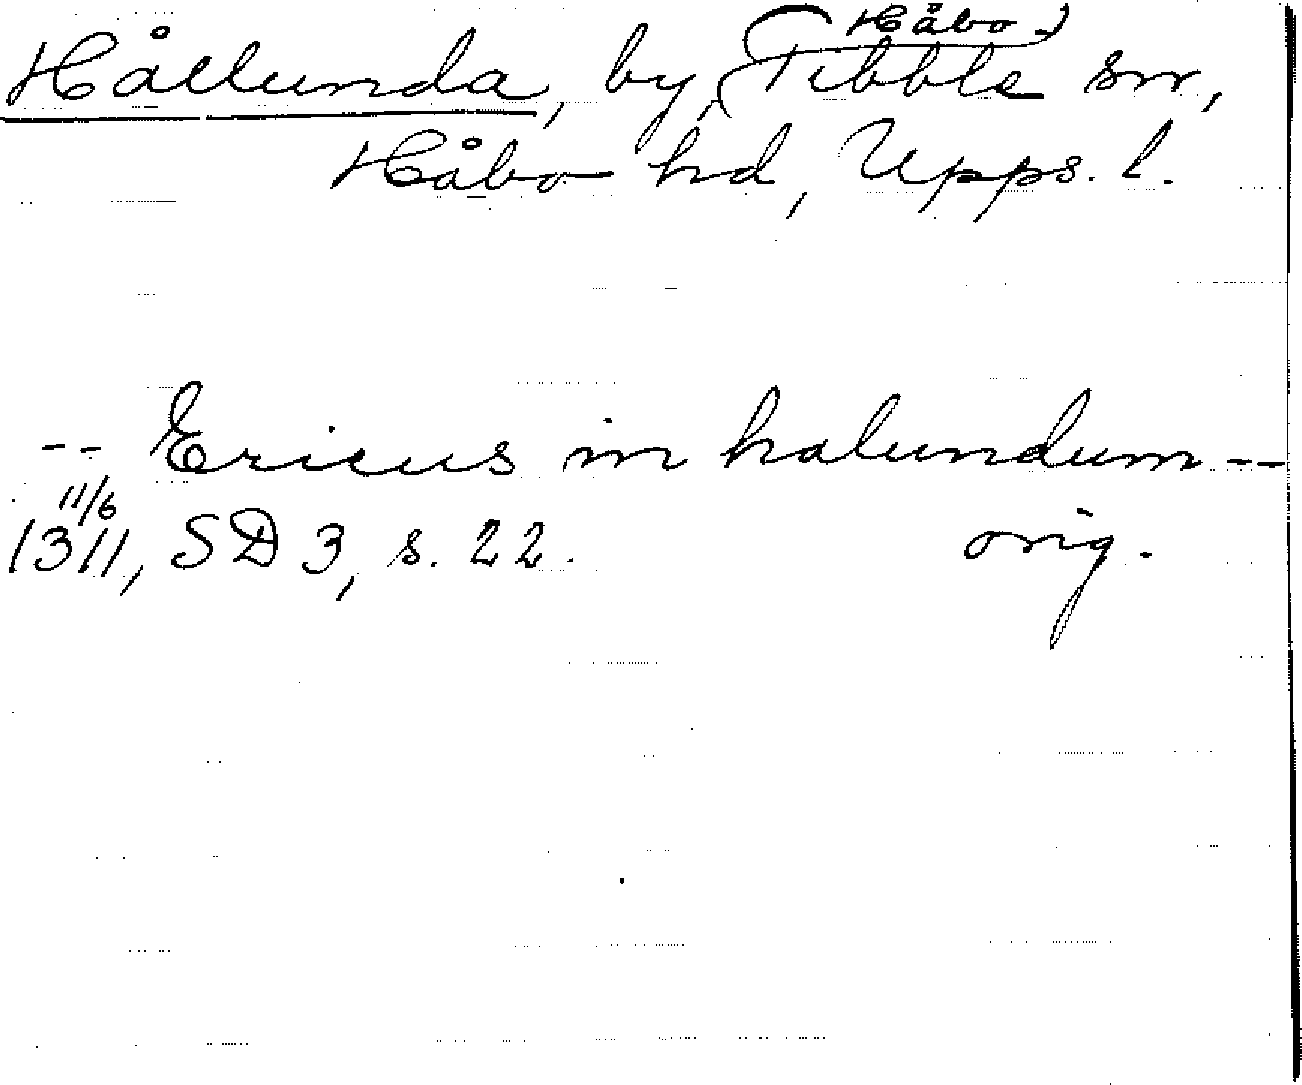 Hållunda, by, (Håbo-) Tibble sn,
Håbo hd, Upps. l.
-- Ericus in halundum --
11/6
1311, SD 3, s. 22. orig.